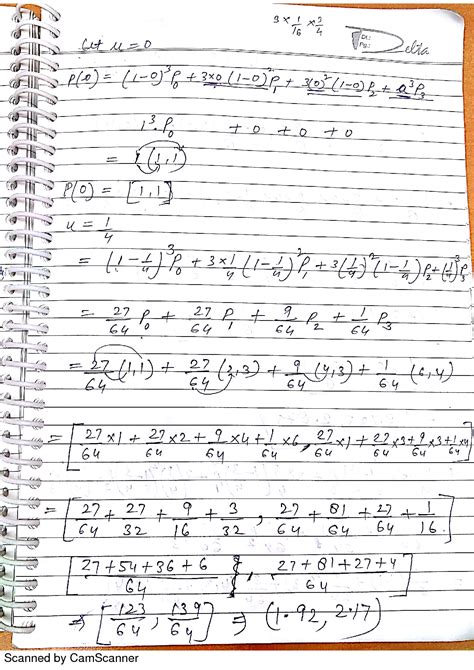 3 × 1/16 × 3/4
Delta
Let u = 0
P(0) = (1-0)³P₀ + 3×0 (1-0)²P₁ + 3(0)² (1-0) P₂ + 0³P₃
1³.P₀ + 0 + 0 + 0
= 1 (1,1)
P(0) = [1,1]
u = 1/4
= (1-1/4)³P₀ + 3×1/4 (1-1/4)²P₁ + 3(1/4)² (1-1/4) P₂ + (1/4)³P₃
= 27/64 P₀ + 27/64 P₁ + 9/64 P₂ + 1/64 P₃
= 27/64 (1,1) + 27/64 (2,3) + 9/64 (4,3) + 1/64 (6,4)
= [27/64 ×1 + 27/64 ×2 + 9/64 ×4 + 1/64 ×6, 27/64 ×1 + 27/64 ×3 + 9/64 ×3 + 1/64 ×4]
= [27/64 + 27/32 + 9/16 + 3/32, 27/64 + 81/64 + 27/64 + 1/16]
[27+54+36+6/64, 27+81+27+4/64]
⇒ [123/64, 139/64] ⇒ (1.92, 2.17)
Scanned by CamScanner